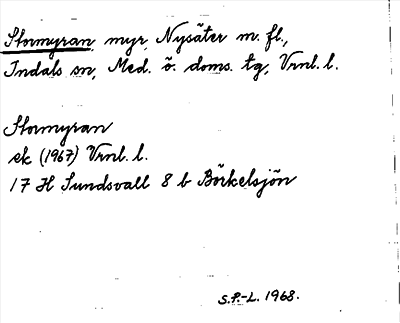 Stormyran, myr, Nysäter m. fl.,
Indals sn, Med. ö. doms. tg, Vrnl. l.
Stormyran
ek (1967) Vrnl. l.
17 H Sundsvall 8 b Börkelsjön
S.P.-L. 1968.